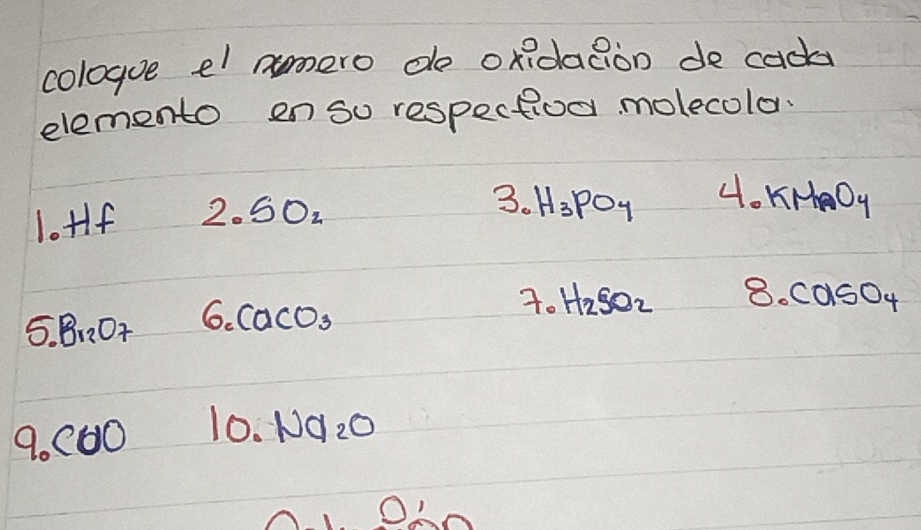 cologue el numero de oxidación de cada
elemento en su respectiva molecula.
1. Hf 2. SO₂ 3. H₃PO₄ 4. KMnO₄
5. Br₂O₇ 6. CaCO₃ 7. H₂SO₂ 8. CaSO₄
9. CaO 10. Na₂O